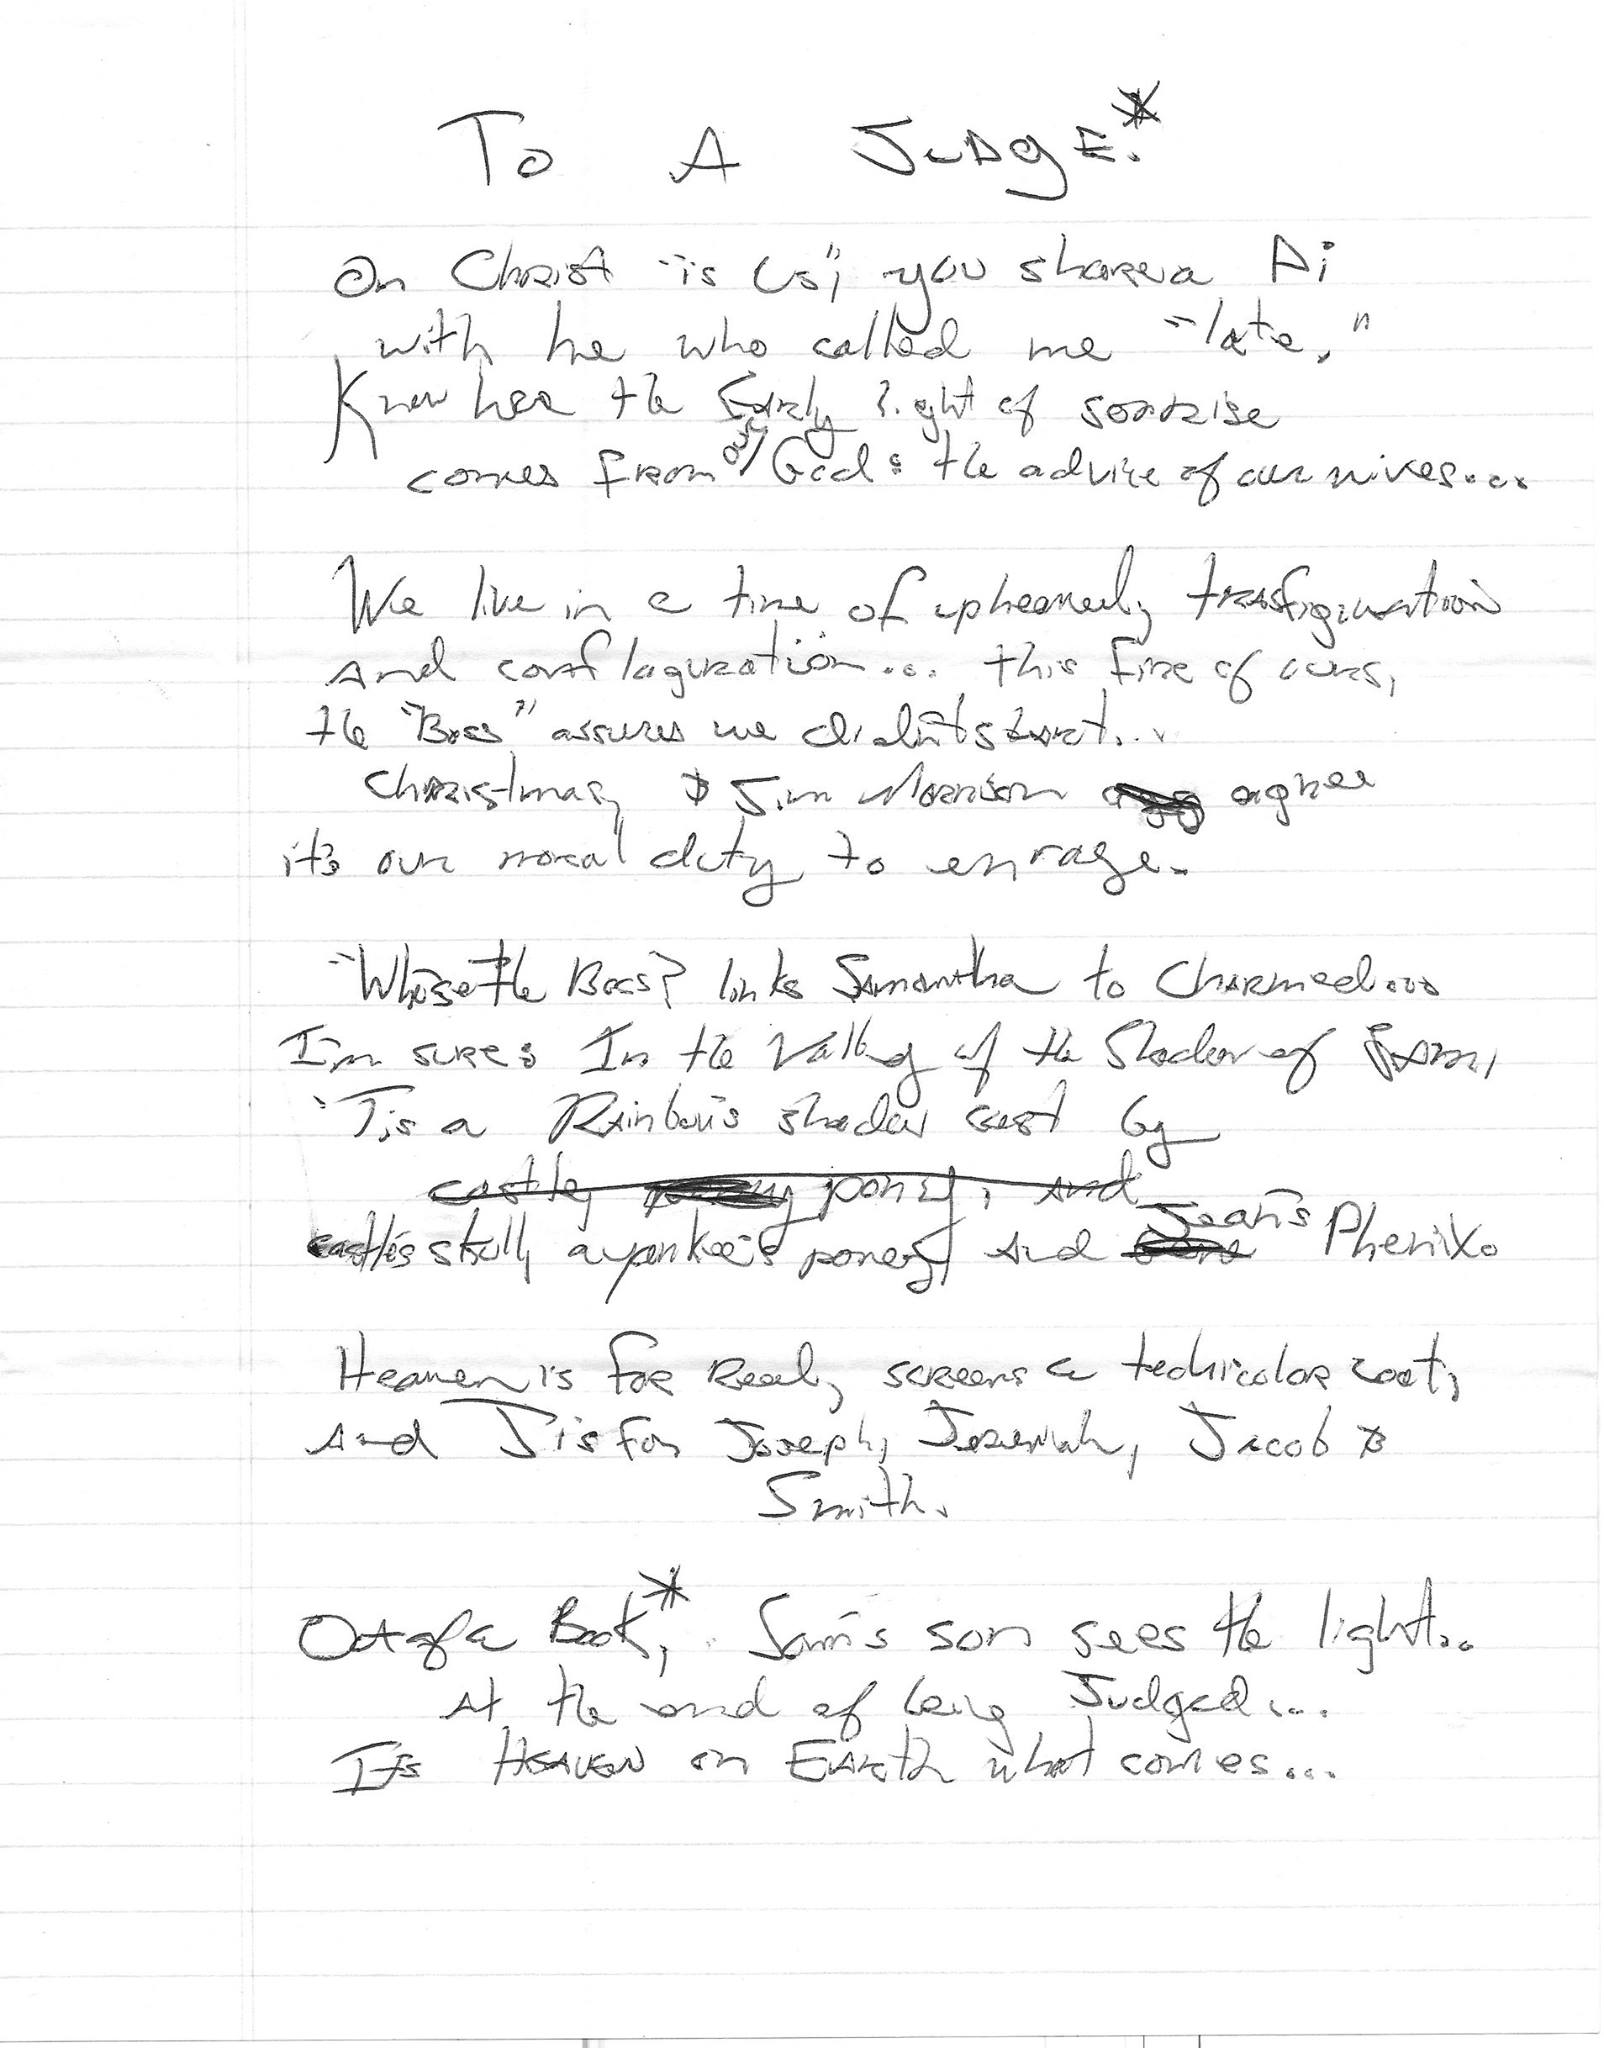 To A JuDgE.*
On Christ "is Us", you share a Ai
with he who called me "late."
Know her the Early light of sonrise
comes from our God: the advice of our wives...
We live in a time of upheaval, trasfiguration
and conflaguration... this fire of ours,
the "Boss" assures we didn't start...
Christmas, & Jim Morrison agree
it's our moral duty to enrage.
"Whose the Boss? links Samantha to Charmed...
I'm sure: In the Valley of the Shadow of
'Tis a Rainbow's shadow cast by
castle, pony, and
castle's skull, a yankee's poney, and Jean's Phenix.
Heaven is for Real, screens a techicolor coat,
and J is for Joseph, Jeremiah, Jacob &
Smith.
Out of a Book*, Sam's son sees the light..
At the end of being Judged...
Its HEAVEN on EARth what comes...